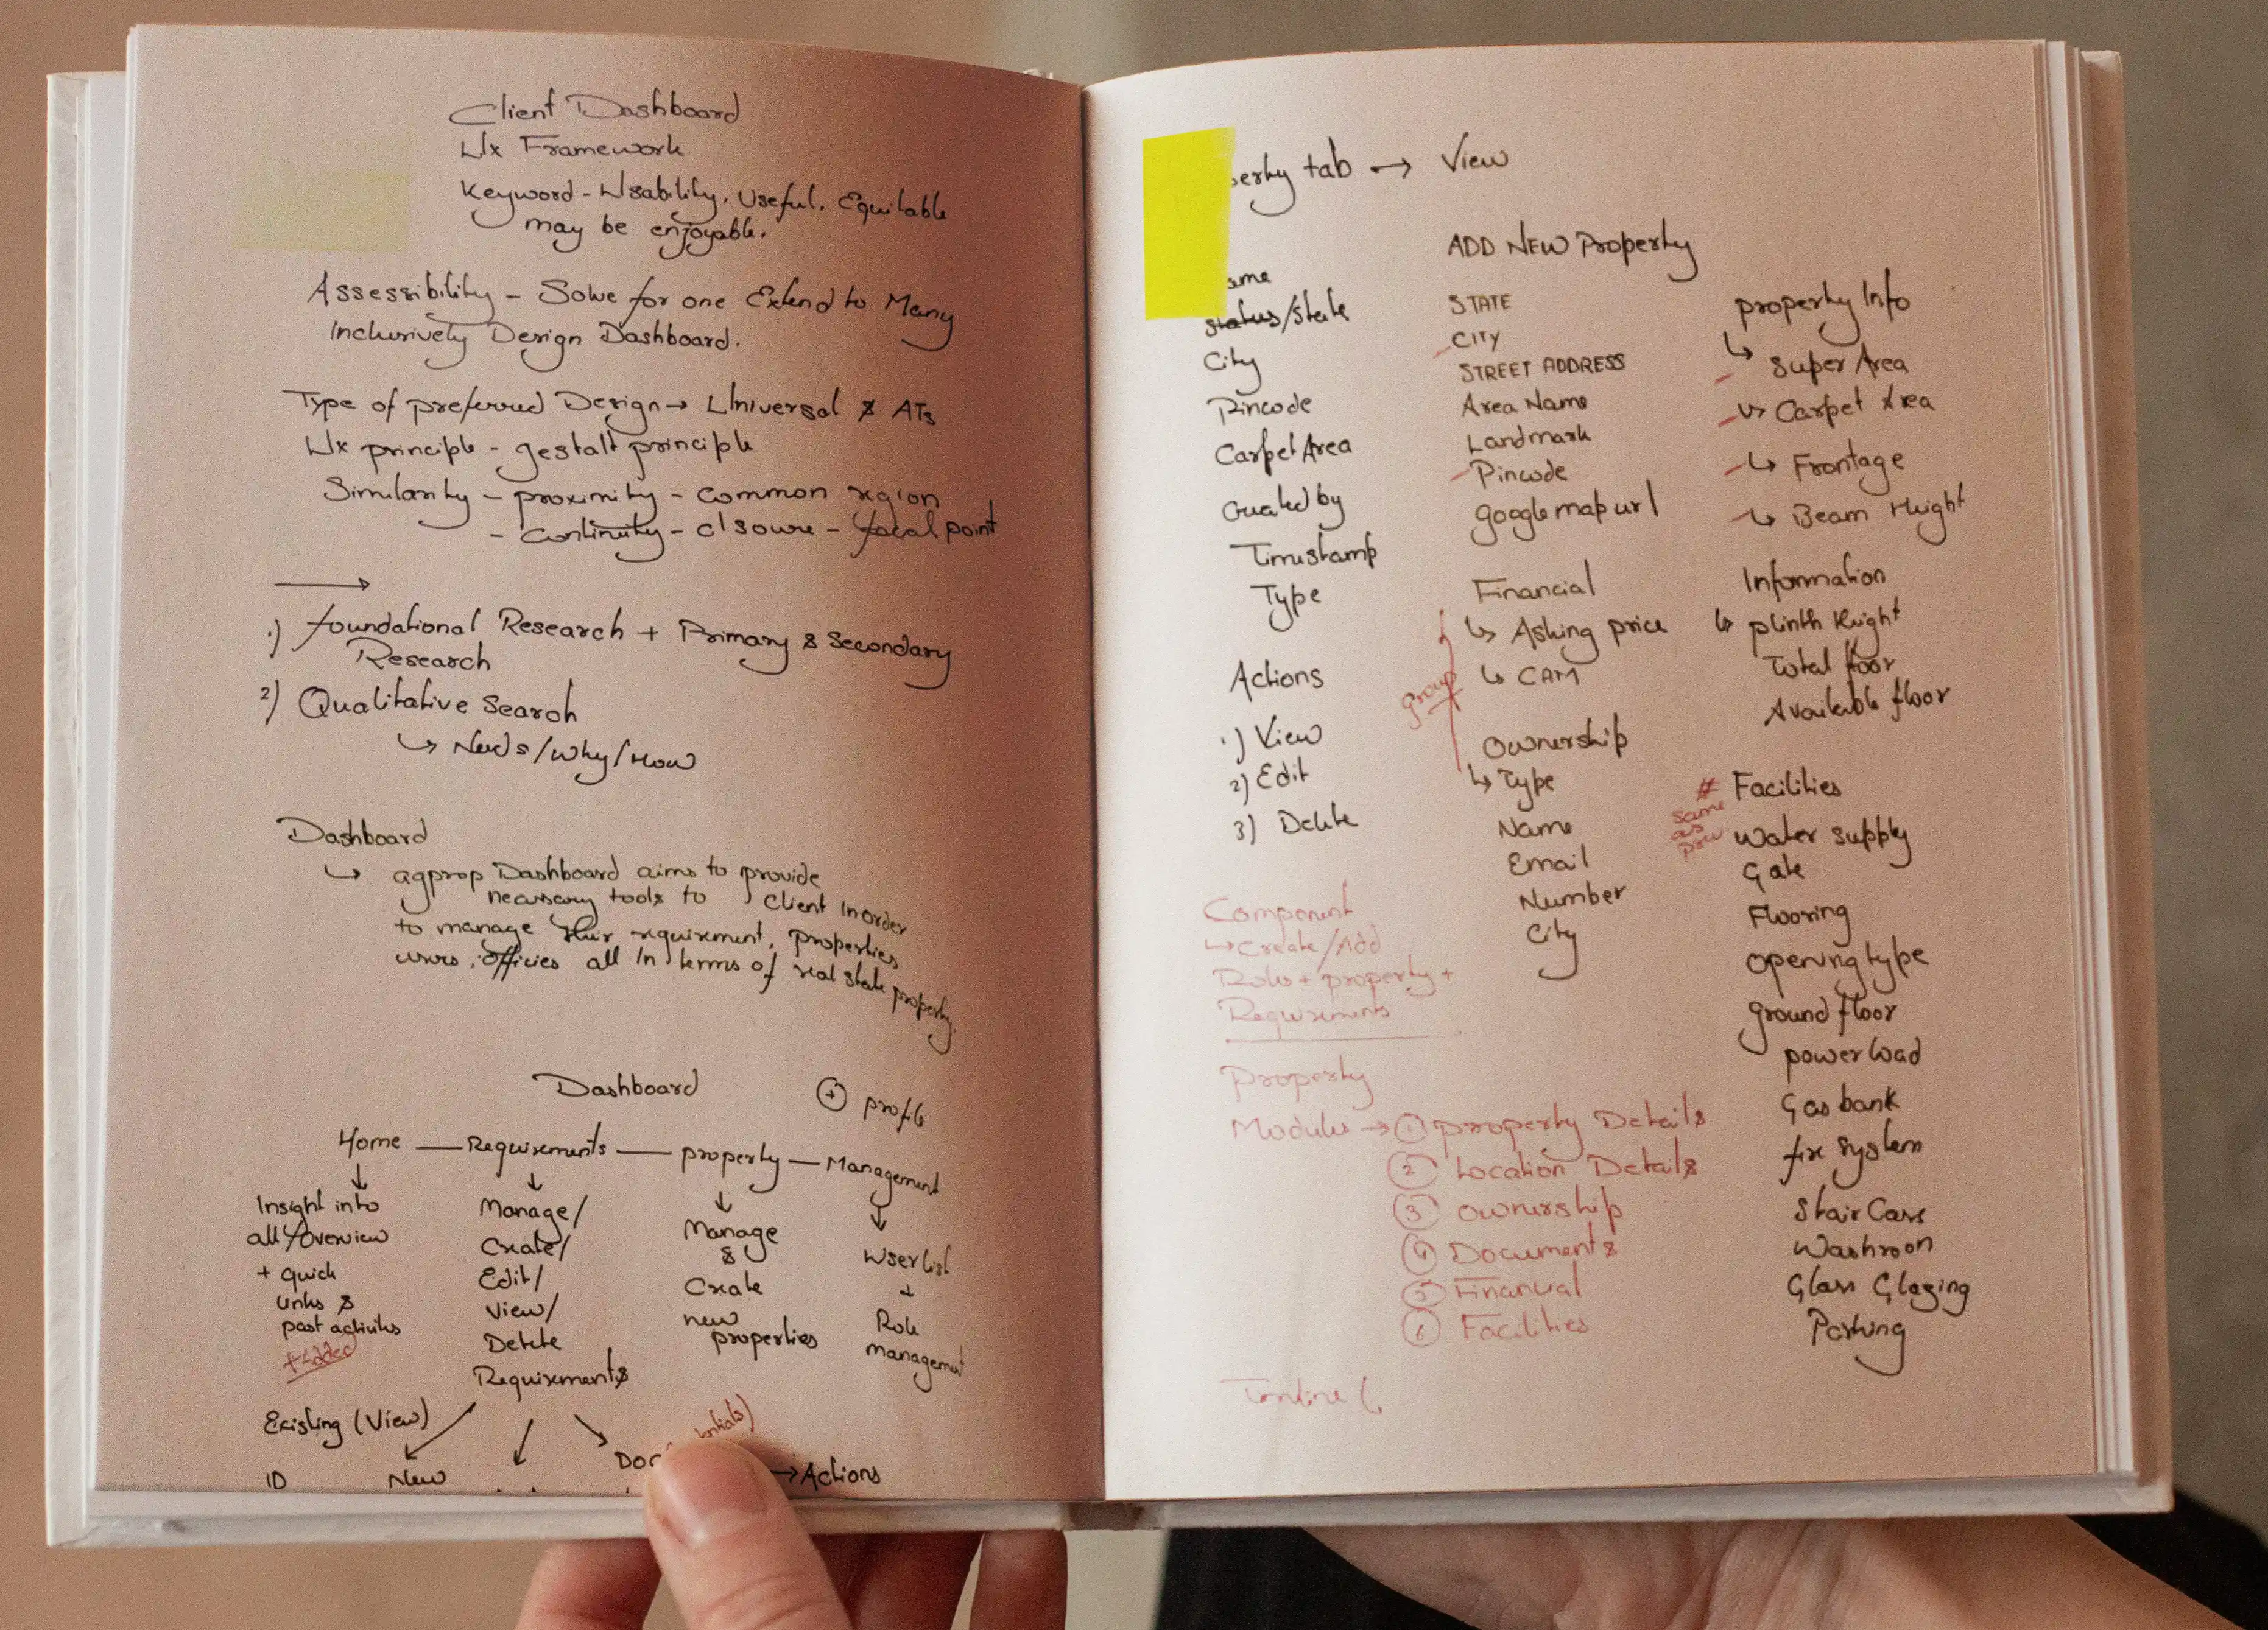 Client Dashboard
Ux Framework
Keyword - Usability. Useful. Equitable
may be enjoyable.
Assessibility - Solve for one Extend to Many
Inclusively Design Dashboard.
Type of preferred Design → Universal & ATs
Ux principle - gestalt principle
Similarity - proximity - common region
- continuity - closure - focal point
→
1) Foundational Research + Primary & Secondary
Research
2) Qualitative Search
↳ Needs/Why/How
Dashboard
↳ agprop Dashboard aims to provide
necessary tools to client in order
to manage their requirement, properties
users, officies all in terms of real state property.
Dashboard
+ profile
Home — Requirements — property — Management
↓ ↓ ↓ ↓
Insight into
all/overview
+ quick
links &
past activities
+ Added
Manage/
Create/
Edit/
View/
Delete
Requirements
Manage
&
Create
new
properties
User list
+
Role
management
Existing (View)
ID
New
→ Actions
tab → View
status/State
City
Pincode
Carpet Area
Created by
Timestamp
Type
Actions
1) View
2) Edit
3) Delete
Component
↳ Create/Add
Roles + property +
Requirements
ADD NEW Property
STATE
CITY
STREET ADDRESS
Area Name
Landmark
Pincode
google map url
Financial
↳ Asking price
↳ CAM
group
Ownership
↳ Type
Name
Email
Number
City
property Info
↳ Super Area
↳ Carpet Area
↳ Frontage
↳ Beam Height
Information
↳ plinth Height
Total floor
Available floor
# Facilities
same
as
Water supply
Gate
Flooring
Opening type
ground floor
power load
Gas bank
fire system
Stair Case
Washroom
Glass Glazing
Parking
Property
Modules → 1 property Details
2 Location Details
3 ownership
4 Documents
5 Financial
6 Facilities
Timeline (